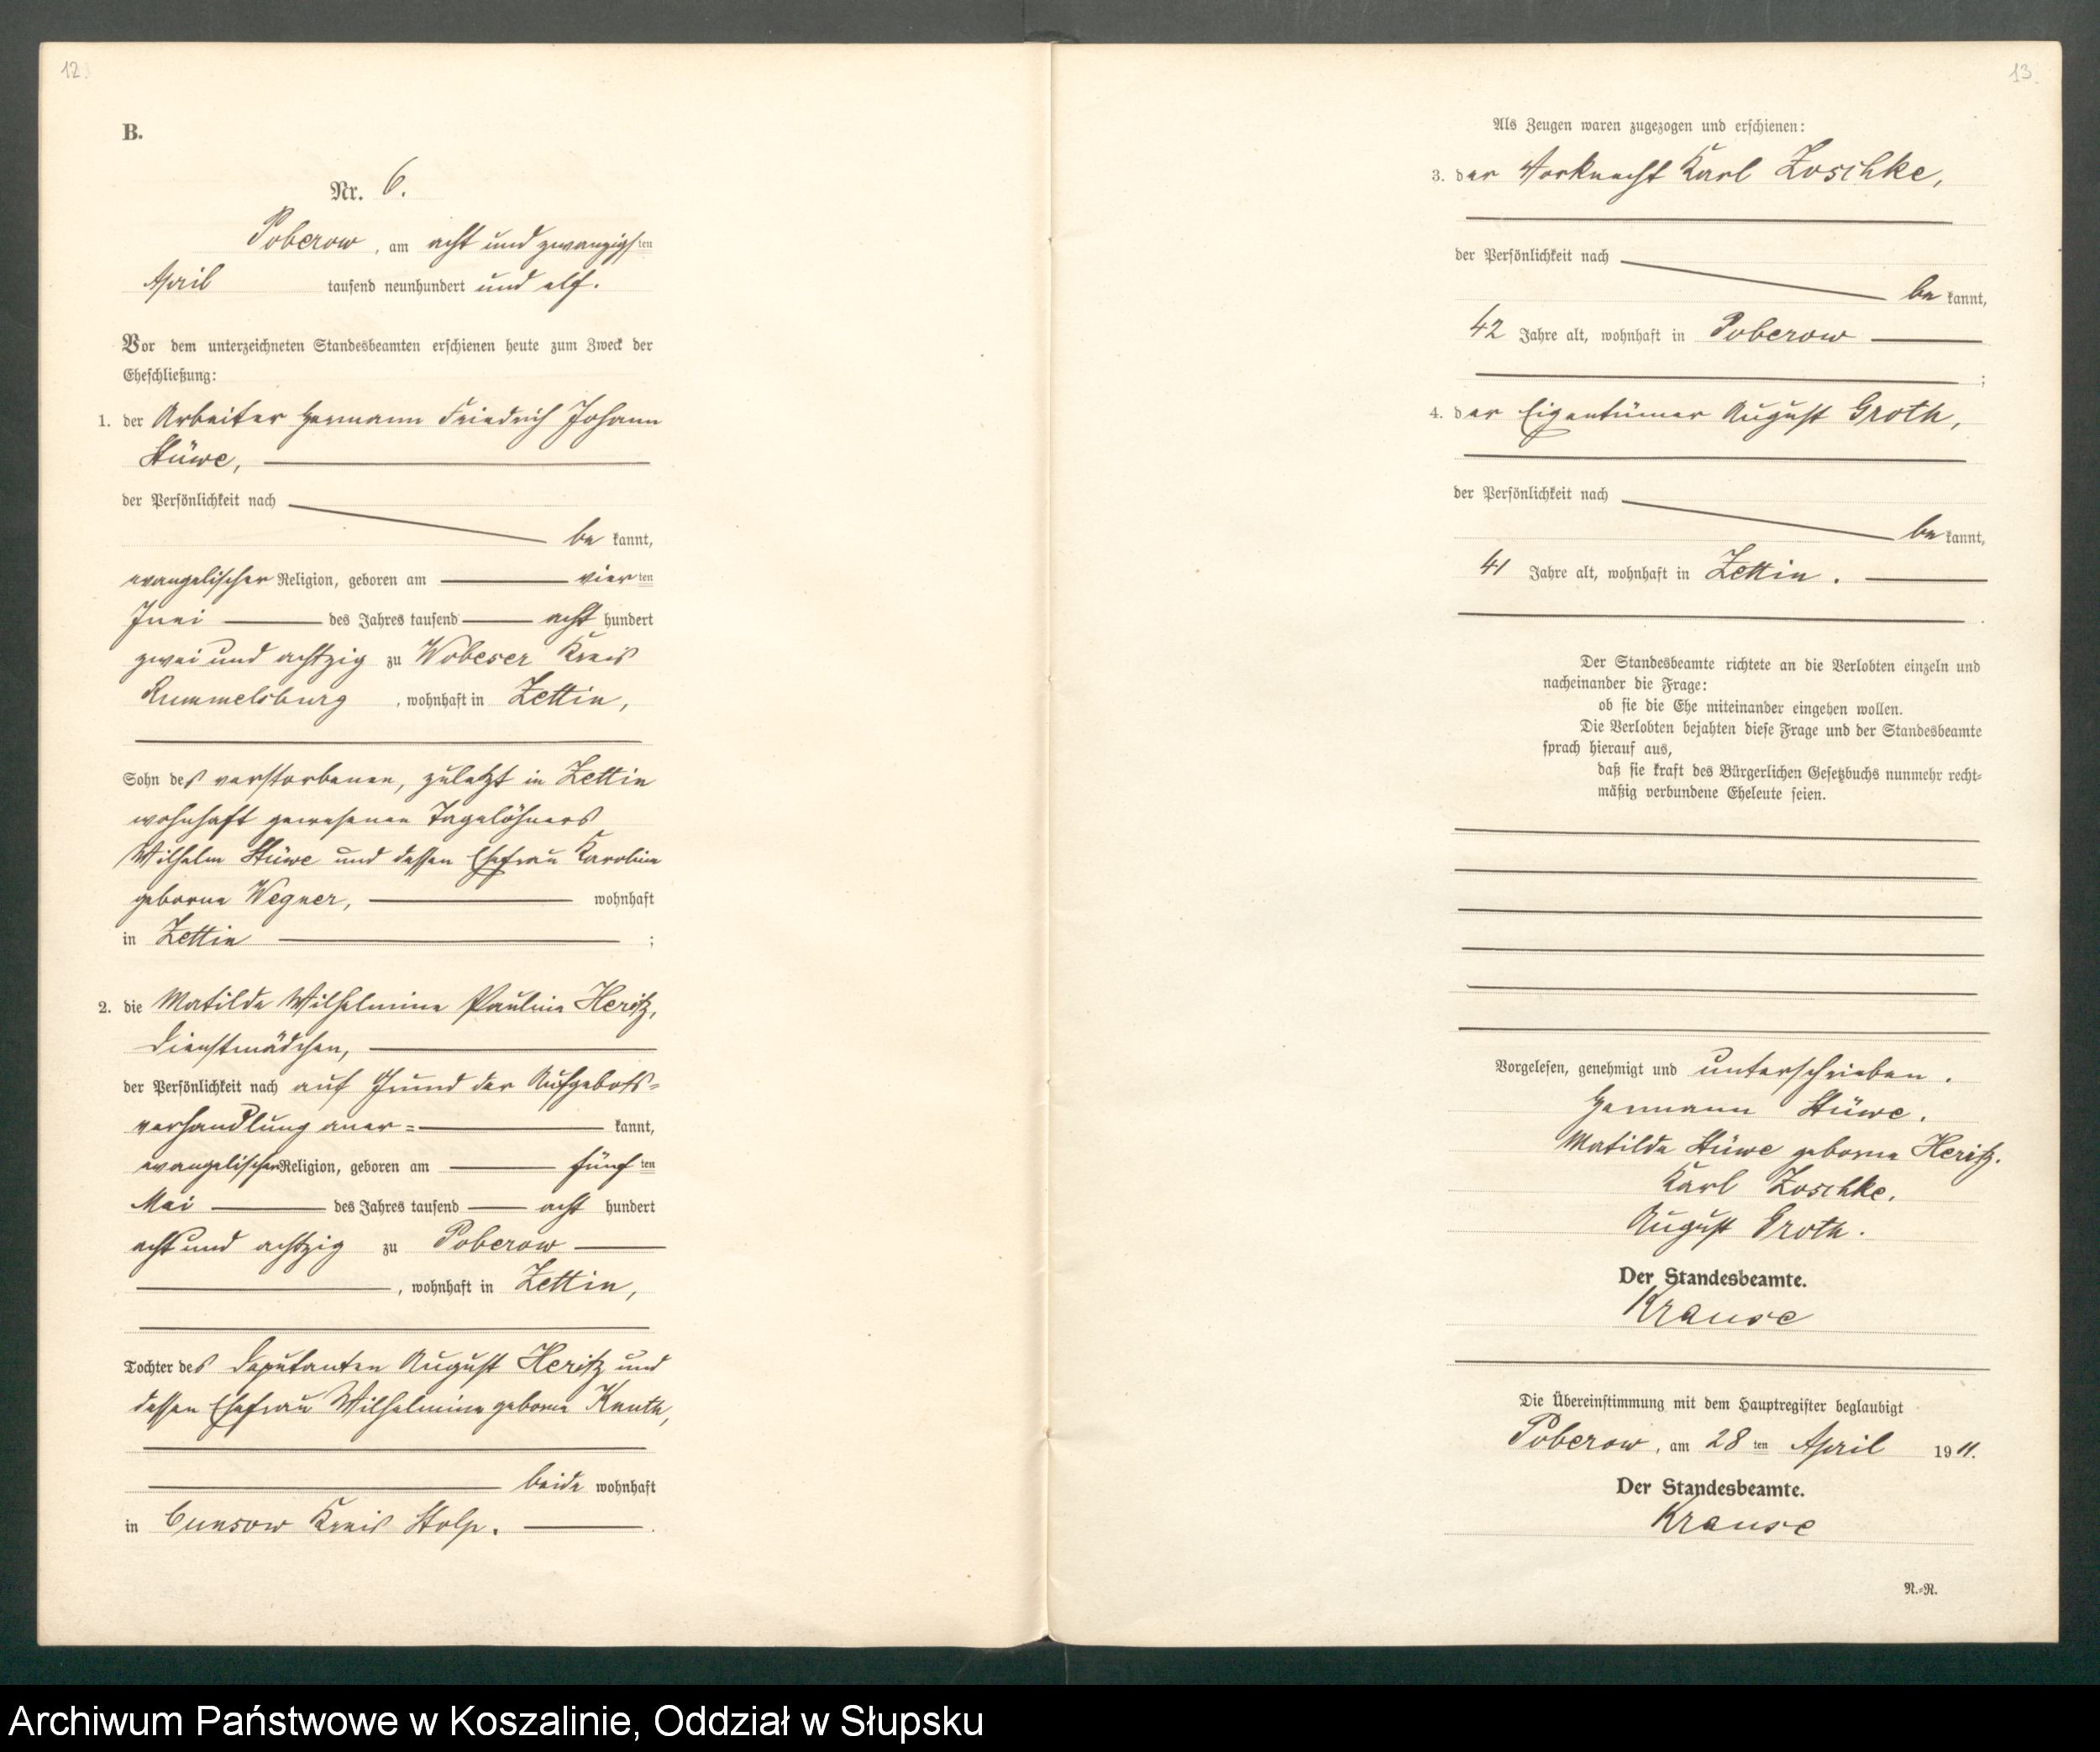 12
B.
Nr. 6.
Poberow, am acht und zwanzigsten
April tausend neunhundert und elf.
Vor dem unterzeichneten Standesbeamten erschienen heute zum Zweck der
Eheschließung:
1. der Arbeiter Hermann Friedrich Johann
Stüwe,
der Persönlichkeit nach
be kannt,
evangelischer Religion, geboren am vierten
Juni des Jahres tausend acht hundert
zwei und achtzig zu Wobeser Kreis
Rummelsburg, wohnhaft in Zettin,
Sohn des verstorbenen, zuletzt in Zettin
wohnhaft gewesenen Tagelöhners
Wilhelm Stüwe und dessen Ehefrau Karoline
geborne Wegner, wohnhaft
in Zettin ;
2. die Matilde Wilhelmine Pauline Heritz,
Dienstmädchen,
der Persönlichkeit nach auf Grund der Aufgebots=
verhandlung aner= kannt,
evangelischer Religion, geboren am fünften
Mai des Jahres tausend acht hundert
acht und achtzig zu Poberow
, wohnhaft in Zettin,
Tochter des Deputanten August Heritz und
dessen Ehefrau Wilhelmine geborne Knuth,
beide wohnhaft
in Cunsow Kreis Stolp.
13
Als Zeugen waren zugezogen und erschienen:
3. der Vorknecht Karl Zoschke,
der Persönlichkeit nach
be kannt,
42 Jahre alt, wohnhaft in Poberow
;
4. der Eigentümer August Groth,
der Persönlichkeit nach
be kannt,
41 Jahre alt, wohnhaft in Zettin.
Der Standesbeamte richtete an die Verlobten einzeln und
nacheinander die Frage:
ob sie die Ehe miteinander eingehen wollen.
Die Verlobten bejahten diese Frage und der Standesbeamte
sprach hierauf aus,
daß sie kraft des Bürgerlichen Gesetzbuchs nunmehr recht=
mäßig verbundene Eheleute seien.
Vorgelesen, genehmigt und unterschrieben.
Hermann Stüwe.
Matilde Stüwe geborne Heritz.
Karl Zoschke.
August Groth.
Der Standesbeamte.
Krause
Die Übereinstimmung mit dem Hauptregister beglaubigt
Poberow, am 28ten April 1911.
Der Standesbeamte.
Krause
N.=R.
Archiwum Państwowe w Koszalinie, Oddział w Słupsku